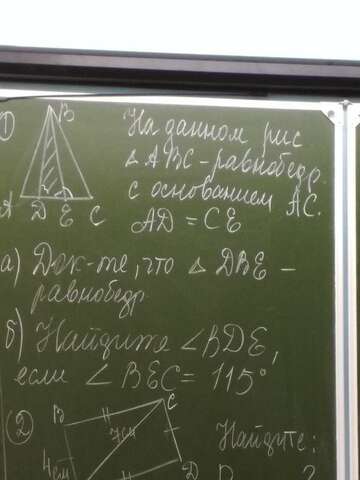 1
B
На данном рис
△ ABC - равнобедр.
с основанием AC.
AD = CE
A D E C
а) Док-те, что △ DBE -
равнобедр
б) Найдите ∠BDE,
если ∠ BEC = 115°
2
B C
7см
4см
Найдите:
D